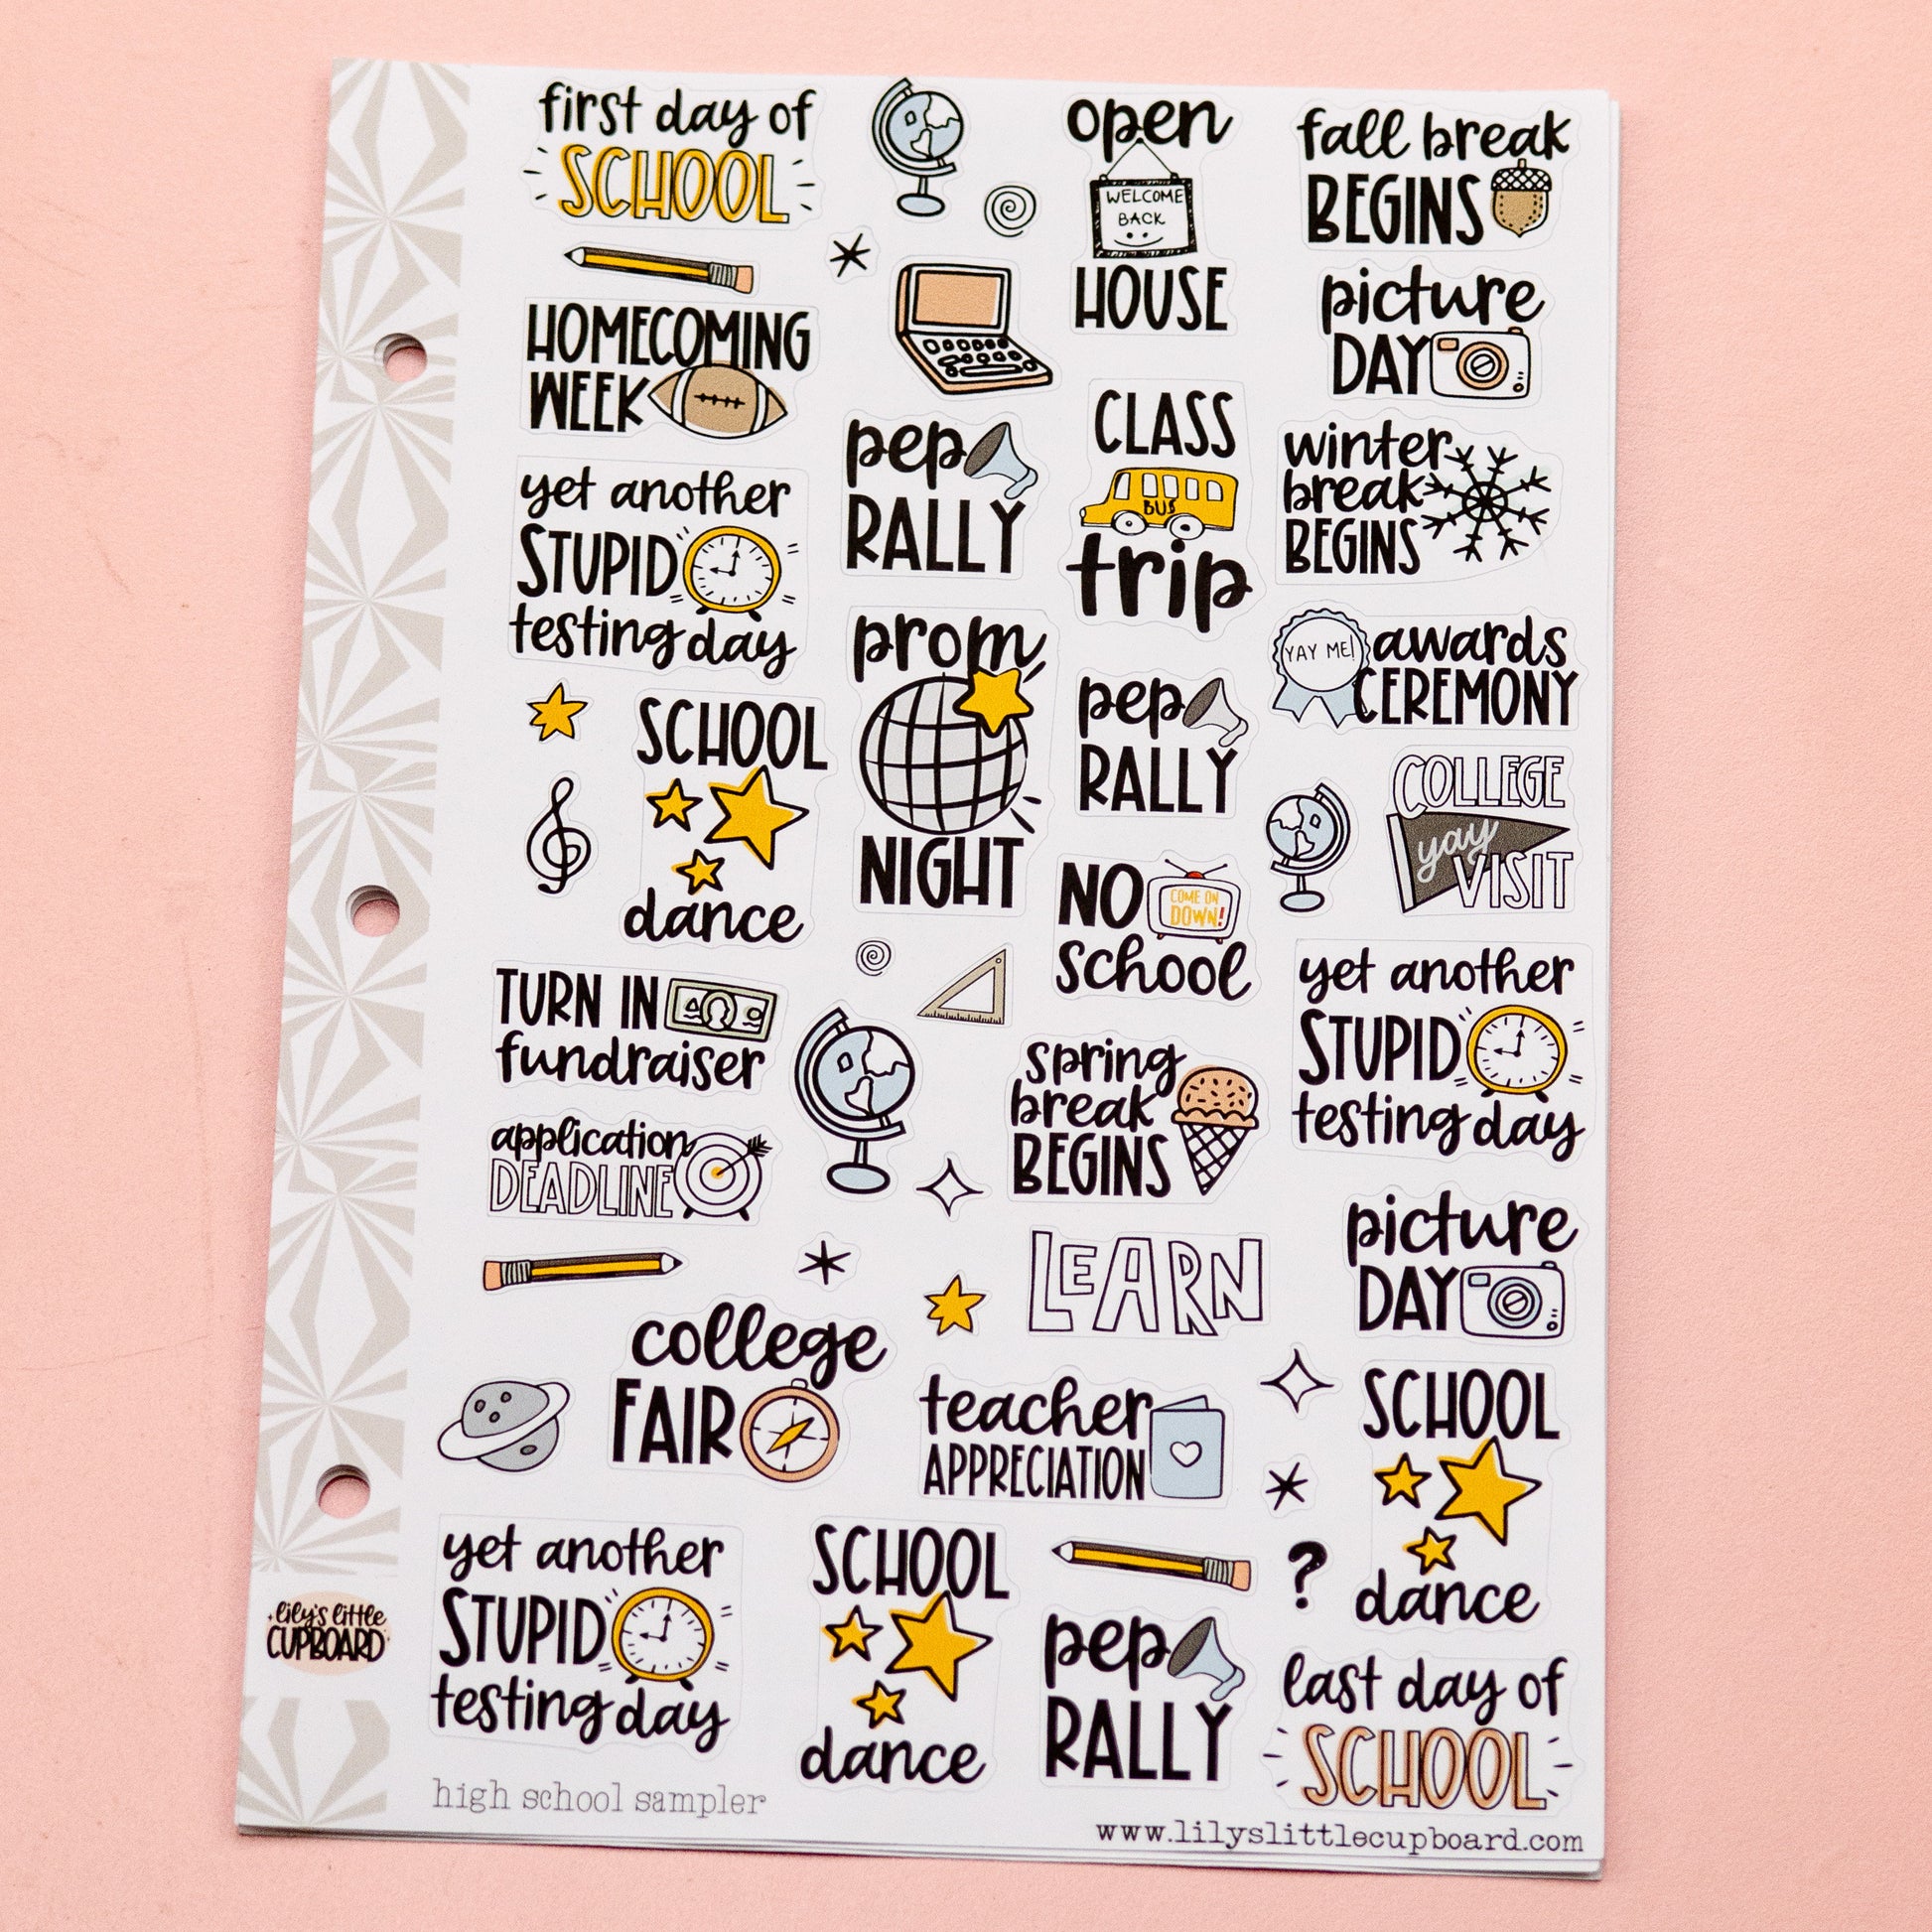 first day of
SCHOOL
open
WELCOME
BACK
HOUSE
fall break
BEGINS
HOMECOMING
WEEK
picture
DAY
pep
RALLY
CLASS
BUS
trip
winter
break
BEGINS
yet another
STUPID
testing day
prom
NIGHT
YAY ME!
awards
CEREMONY
SCHOOL
dance
pep
RALLY
COLLEGE
yay
VISIT
NO
COME ON
DOWN!
school
TURN IN
fundraiser
spring
break
BEGINS
yet another
STUPID
testing day
application
DEADLINE
LEARN
picture
DAY
college
FAIR
teacher
APPRECIATION
SCHOOL
dance
yet another
STUPID
testing day
SCHOOL
dance
?
pep
RALLY
last day of
SCHOOL
lily's little
CUPBOARD
high school sampler
www.lilyslittlecupboard.com